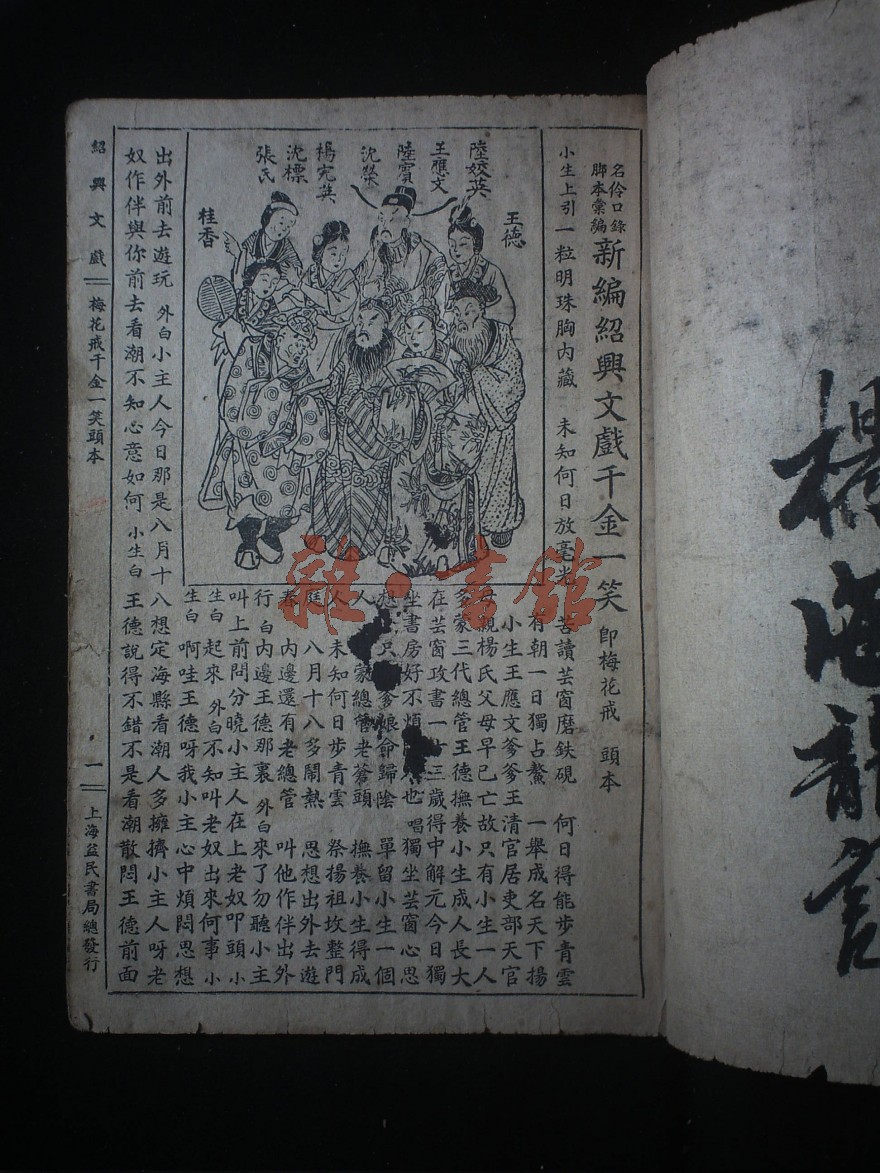 楊海龍
名伶口錄
脚本彙編
新編紹興文戲千金一笑 即梅花戒 頭本
小生上引 一粒明珠胸内藏 未知何日放毫光 苦讀芸窗磨鉄硯 何日得能步青雲
王德
陸姣英
王應文
陸賓
沈榮
楊完英
沈標
張氏
桂香
有朝一日獨占鰲 一舉成名天下揚
小生王應文爹爹王清官居吏部天官
母親楊氏父母早已亡故只有小生一人
多蒙三代總管王德撫養小生成人長大
在芸窗攻書一十三歲得中解元今日獨
坐書房好不煩 也 唱獨坐芸窗心思
想 只 爹娘命歸陰 單留小生一個
人 蒙總管老蒼頭 撫養小生得成
人 未知何日步青雲 祭揚祖坟整門
庭 八月十八多鬧熱 思想出外去遊
春 内邊還有老總管 叫他作伴出外
行 白内邊王德那裏 外白來了勿聽小主
叫上前問分曉小主人在上老奴叩頭 小
生白 起來 外白不知叫老奴出來何事 小
生白 啊哇王德呀我小主心中煩悶思想
出外前去遊玩 外白小主人今日那是八月十八想定海縣看潮人多擁擠小主人呀老
奴作伴與你前去看潮不知心意如何 小生白 王德說得不錯不是看潮散悶王德前面
紹興文戲 梅花戒千金一笑頭本 一 上海益民書局總發行